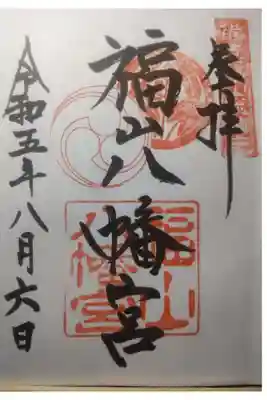 奉拝
福山八幡宮
令和五年八月六日
福山
八幡宮